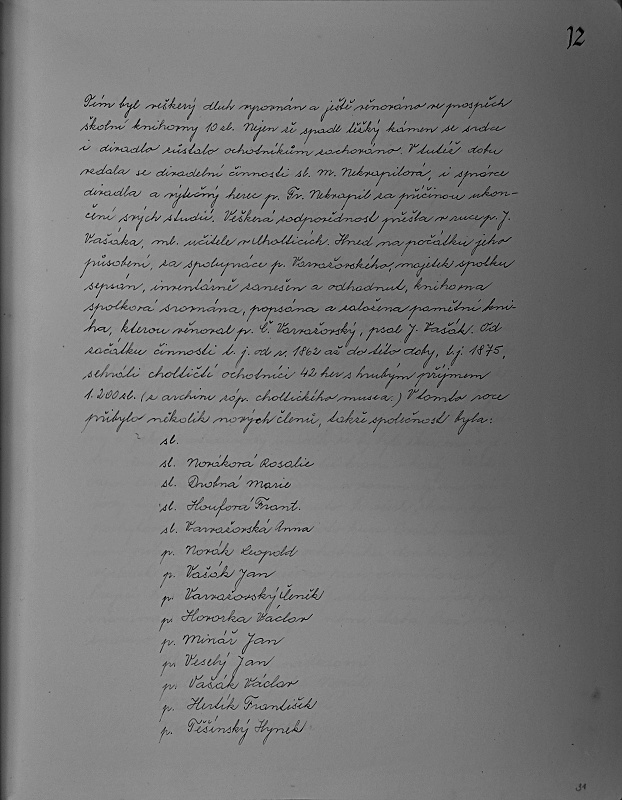 12
Tím byl veškerý dluh vyrovnán a ještě věnováno ve prospěch
školní knihovny 10 zl. Nejen že spadl těžký kámen se srdce
i divadlo zůstalo ochotníkům zachováno. V tutéž dobu
vzdala se divadelní činnosti sl. M. Nekvapilová, i správce
divadla a výtečný herec p. Fr. Nekvapil za příčinou ukon-
čení svých studií. Veškerá zodpovědnost přešla v ruce p. J.
Vašáka, ml. učitele v Cholticích. Hned na počátku jeho
působení, za spolupráce p. Varvažovského, majetek spolku
sepsán, inventárně zanešen a odhadnut, knihovna
spolková srovnána, popsána a založena pamětní kni-
ha, kterou věnoval p. Č. Varvažovský, psal J. Vašák. Od
začátku činnosti t. j. od r. 1862 až do této doby, t.j. 1875,
sehráli choltičtí ochotníci 42 her s hrubým příjmem
1.200 zl. (z archivu záp. choltického musea.) V tomto roce
přibylo několik nových členů, takže společnost byla:
sl.
sl. Nováková Rosalie
sl. Drobná Marie
sl. Houfová Frant.
sl. Varvažovská Anna
p. Novák Leopold
p. Vašák Jan
p. Varvažovský Čeněk
p. Hovorka Václav
p. Minář Jan
p. Veselý Jan
p. Vašák Václav
p. Hertík František
p. Těšínský Hynek
31